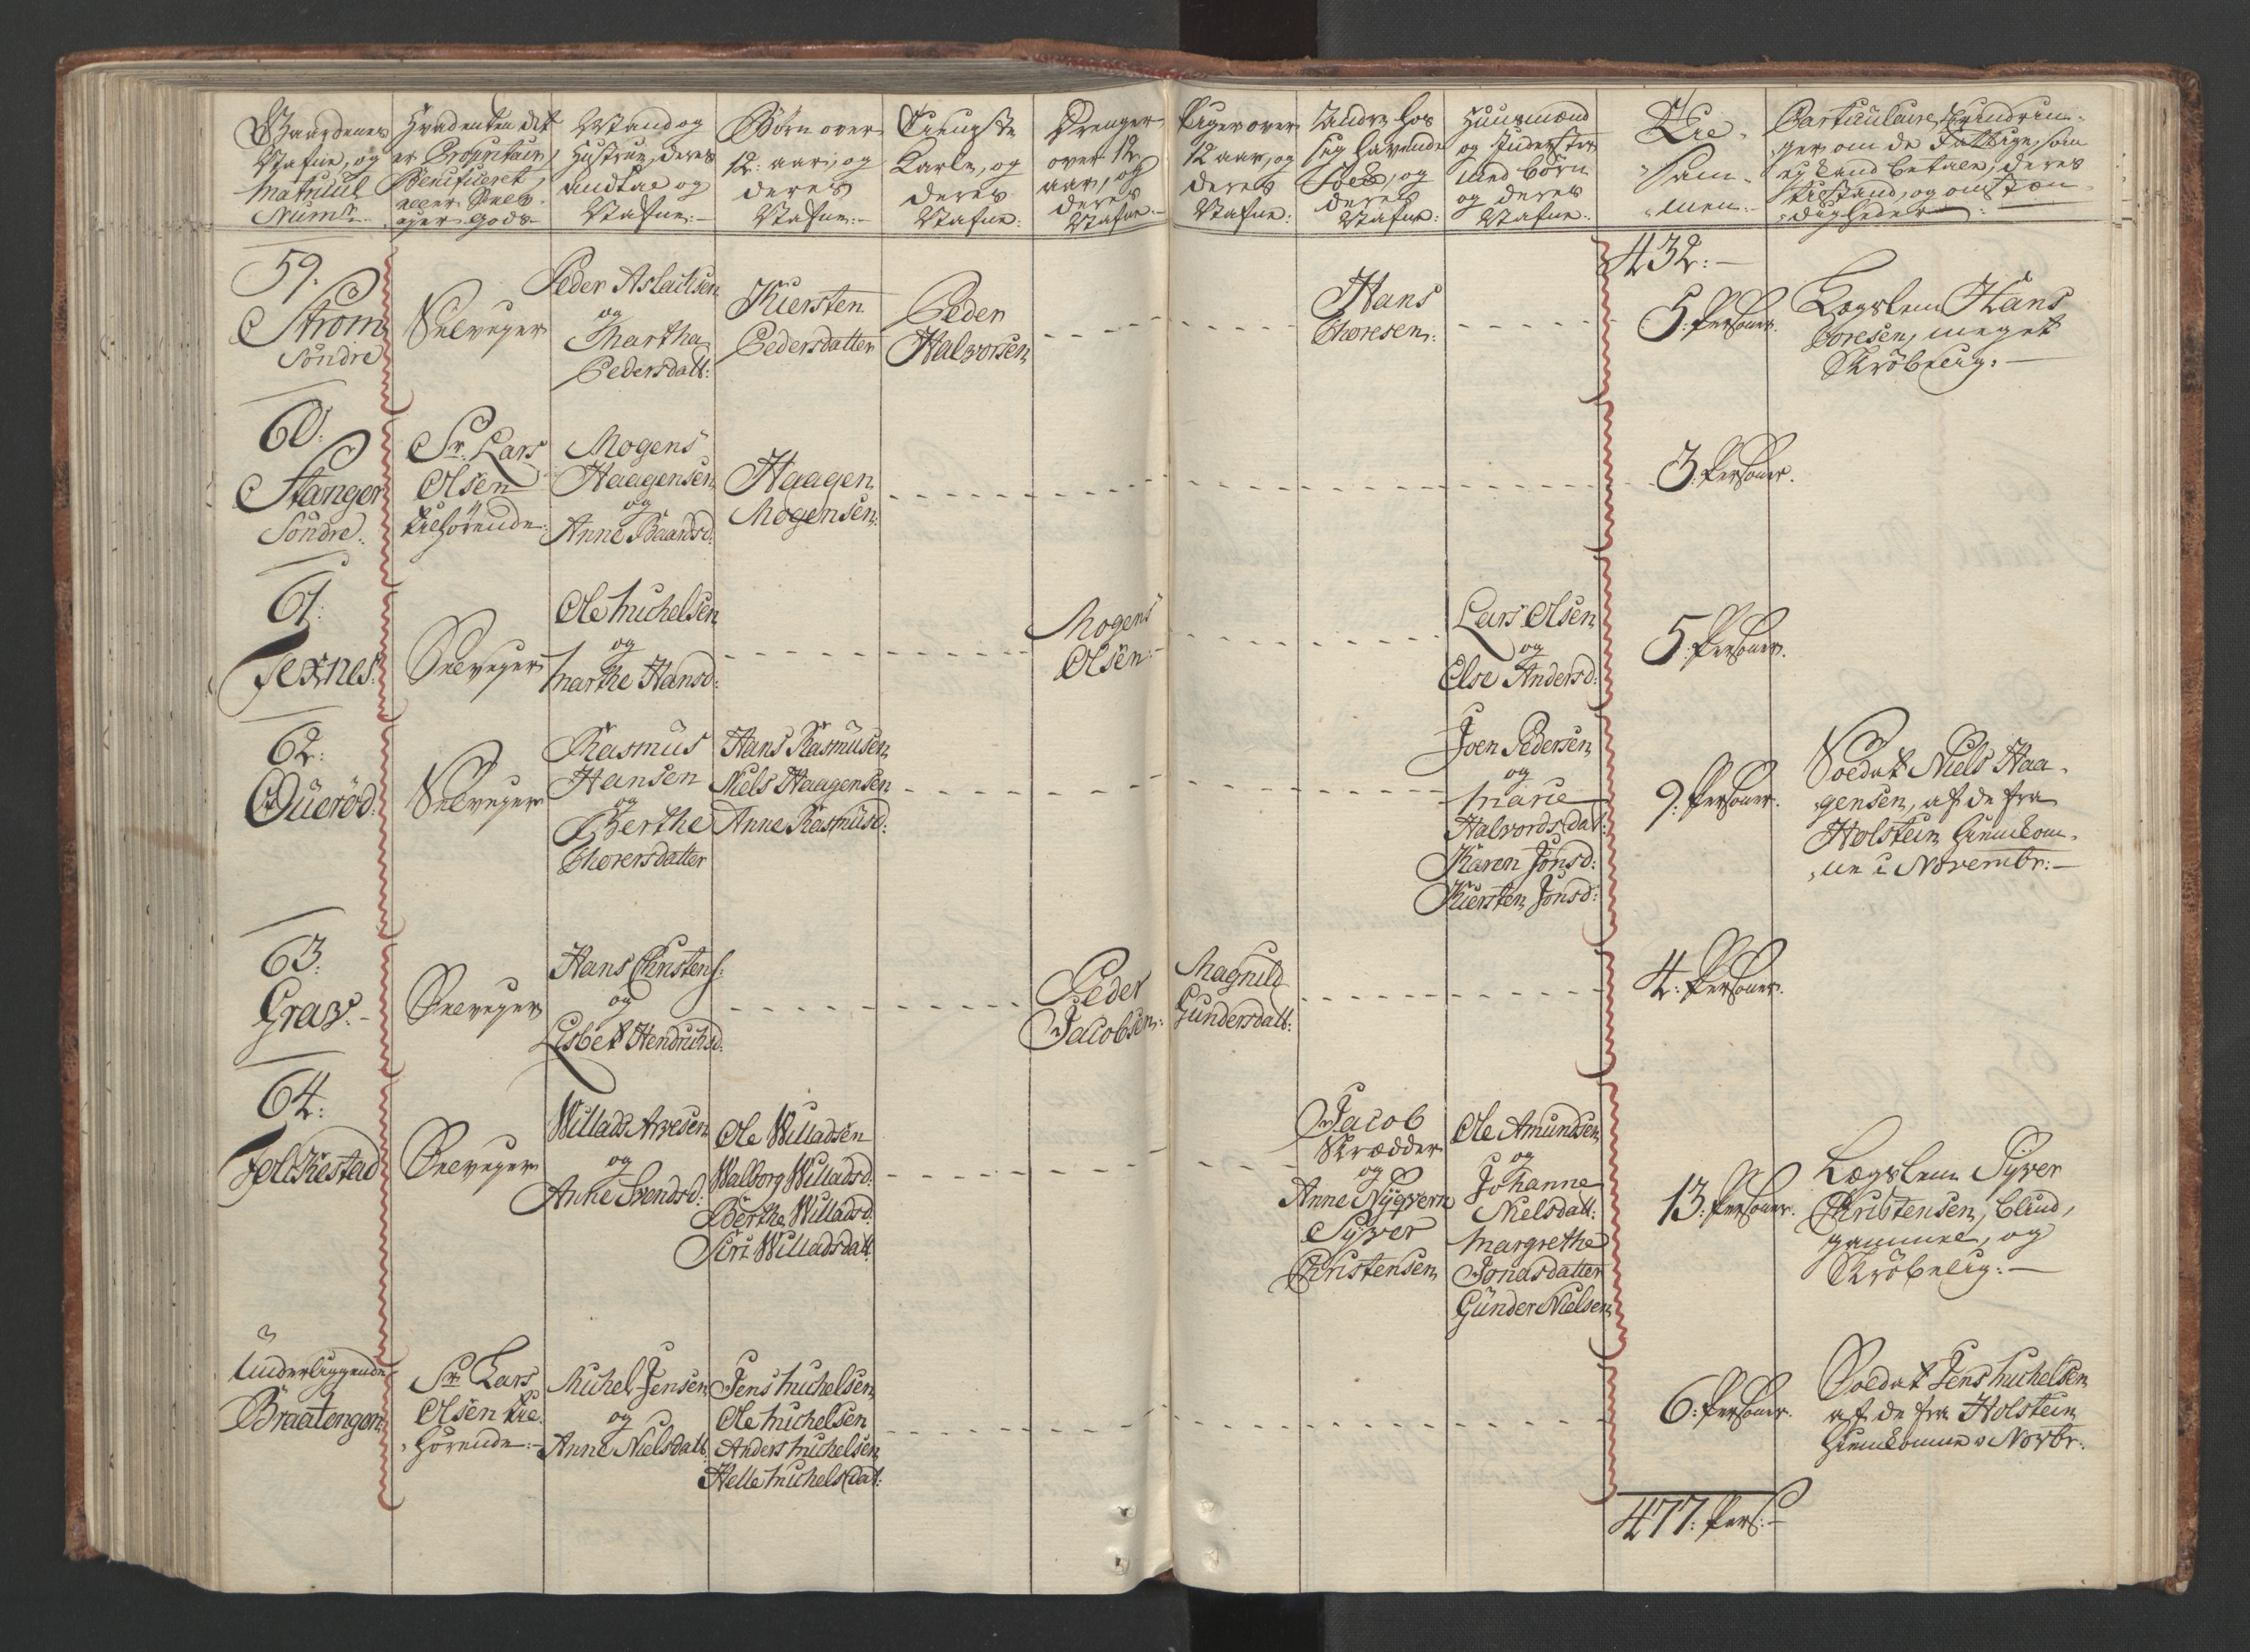 Gaardenes
Nafne, og
Matricul
Num:
Hvadenten det
er Proprietair,
Beneficeret,
eller Selv-
ejer Gods
Mand og
Hustrue, deres
andtal og
Nafne:
Børn over
12: aar, og
deres
Nafne:
Tieniste
Karle, og
deres
Nafne:
Drenger
over 12
aar, og
deres
Nafne:
Piger over
12 aar, og
deres
Nafne:
Andre hos
sig havende
Folck, og
deres
Nafne:
Huusmænd
og Inderster
med børn
og deres
Nafne:
Til-
sam-
men:
Particulaire Erindrin-
ger om de Fattige, som
ey kand betale, deres
tilstand, og omstæn-
digheder:
432:
59.
Strøm
Søndre
Selvejer
Peder Aslachsen
og
Martha
Pedersdatt:
Kiersten
Pedersdatter
Peder
Halvorsen
Hans
Thoresen:
5: Personer.
Lægslem Hans
Toresen, meget
Skrøbelig:
60:
Stanger
Søndre
Sr. Lars
Olsen
tilhørende:
Mogens
Haagensen
og
Anne Baardsd:
Haagen
Mogensen:
3: Personer.
61:
Fexnes:
Selvejer
Ole Michelsen
og
Marthe Hansd:
Mogens
Olsen:
Lars Olsen
og
Else Andersd:
5: Personer.
62:
Querød:
Selvejer
Rasmus
Hansen
og
Berthe
Thorersdatter
Hans Rasmusen
Niels Haagensen
Anne Rasmusd:
Joen Pedersen
og
Marie
Halvordsdat:
Karen Jonsd:
Kiersten Jonsd:
9: Personer.
Soldat Niels Haa-
gensen, af de fra
Holstein hiemkom-
ne i Novembr:
63:
Grav:
Selvejer
Hans Christens:
og
Lisbet Hendrichsd:
Peder
Jacobsen:
Magnild
Gundersdatt:
4: Personer.
64:
Follkestad
Selvejer
Willads Arvesen
og
Anne Svendsd:
Ole Willadsen
Walborg Willadsd:
Berthe Willadsd:
Siri Willadsdatt
Jacob
Skrædder
og
Anne Nygvern
Syver
Christensen
Ole Amundsen
og
Johanne
Nielsdatt:
Margrethe
Jonasdatter
Gunder Nielsen
13: Personer.
Lægslem Syver
Christensen, blind,
gammel, og
Skrøbelig:
Underliggende
Braatengen
Sr. Lars
Olsen til-
hørende:
Michel Jensen
og
Anne Nielsdatt:
Jens Michelsen
Ole Michelsen
Anders Michelsen
Helle Michelsdat:
6: Personer.
Soldat Jens Michelsen
af de fra Holstein
hiemkomne i Novbr:
477: Pers: